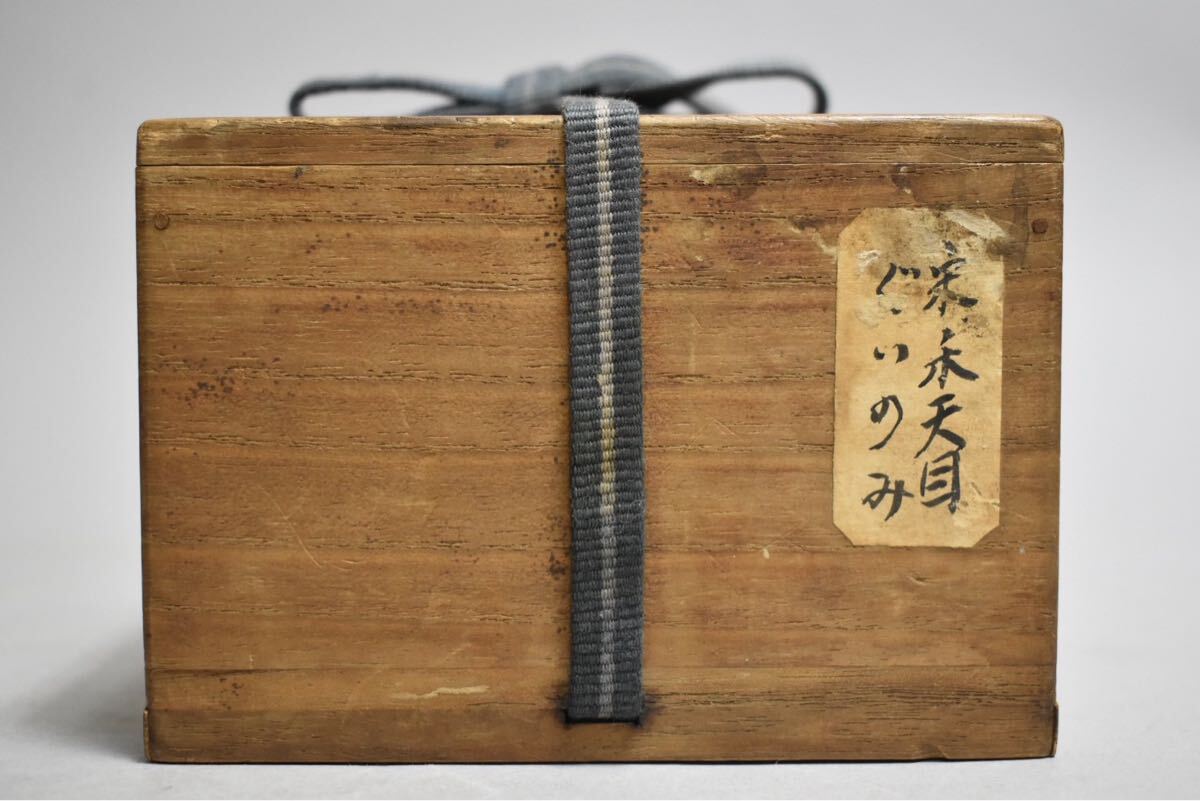 宋禾天目
ぐいのみ